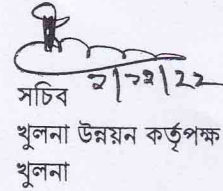 সচিব
খুলনা উন্নয়ন কর্তৃপক্ষ
খুলনা